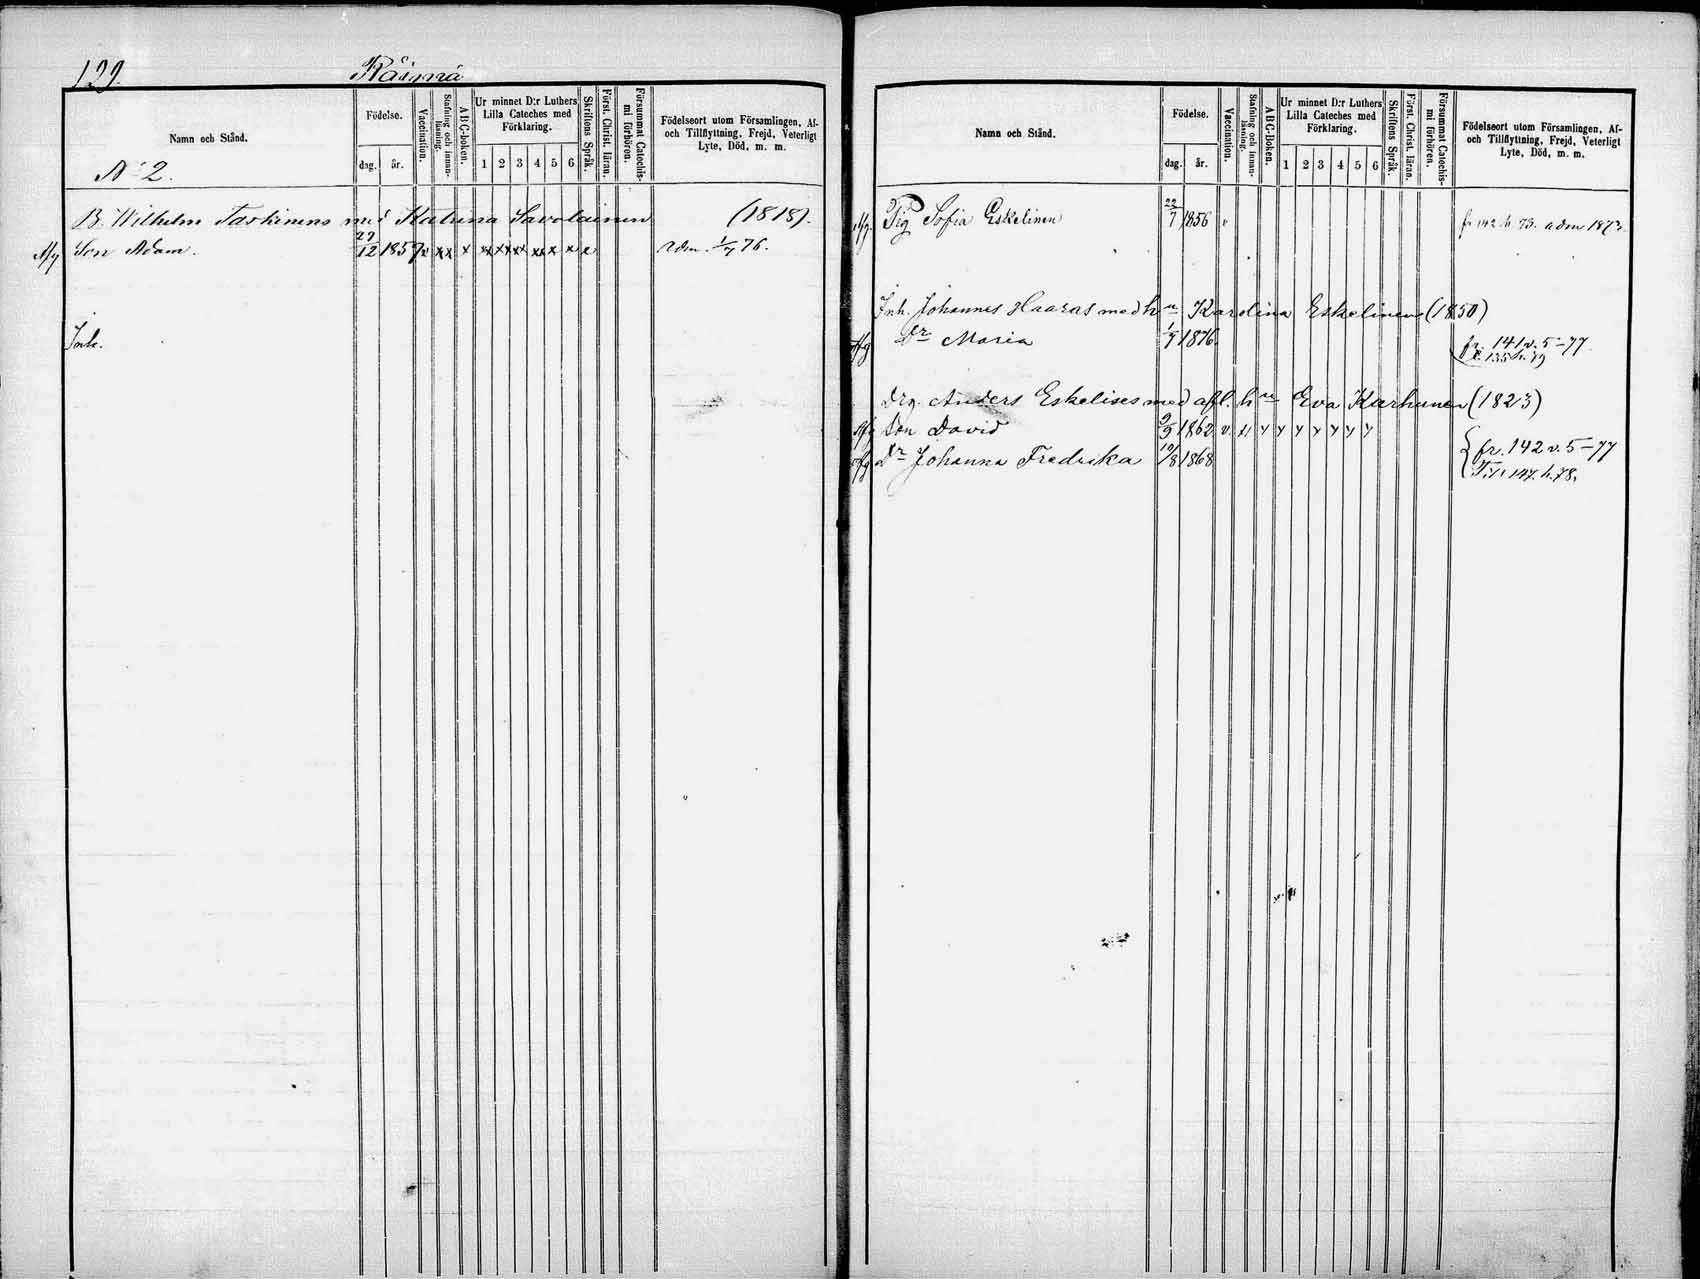 129.
Räimä
Namn och Stånd.
Födelse.
dag.
år.
Vaccination.
Stafning och innan-läsning.
ABC-boken.
Ur minnet D:r Luthers
Lilla Catoches med
Förklaring.
1 2 3 4 5 6
Skriftens Språk.
Först. Christ. läran.
Försummat Catechis-mi förhören.
Födelseort utom Församlingen, Af-
och Tillflyttning, Frejd, Veterligt
Lyte, Död, m. m.
No 2.
B. Wilhelm Taskinens med Katrina Savolainen (1818).
Afg Son Adam. 27/12 1857 v xx x x x x x x x x adm. 1/7 76.
Inh.
Namn och Stånd.
Födelse.
dag.
år.
Vaccination.
Stafning och innan-läsning.
ABC-boken.
Ur minnet D:r Luthers
Lilla Cateches med
Förklaring.
1 2 3 4 5 6
Skriftens Språk.
Först. Christ. läran.
Försummat Catechis-mi förhören.
Födelseort utom Församlingen, Af-
och Tillflyttning, Frejd, Veterligt
Lyte, Död, m. m.
Afg. Pig Sofia Eskelinen 22/7 1856 v fr 142 h. 73. adm 1873.
Inh. Johannes Haaras med hu Karolina Eskelinen (1850)
Afg Dr Maria 1/7 1876. fr. 141 v. 5-77.
t. 135 h. 79
Drg. Anders Eskelises med afl. hu Eva Karhunen (1823)
Afg Son David 9/9 1862 v. x y y y y y y y
Afg Dr Johanna Fredrika 10/8 1868 fr. 142 v. 5-77
Till 147. h. 78.